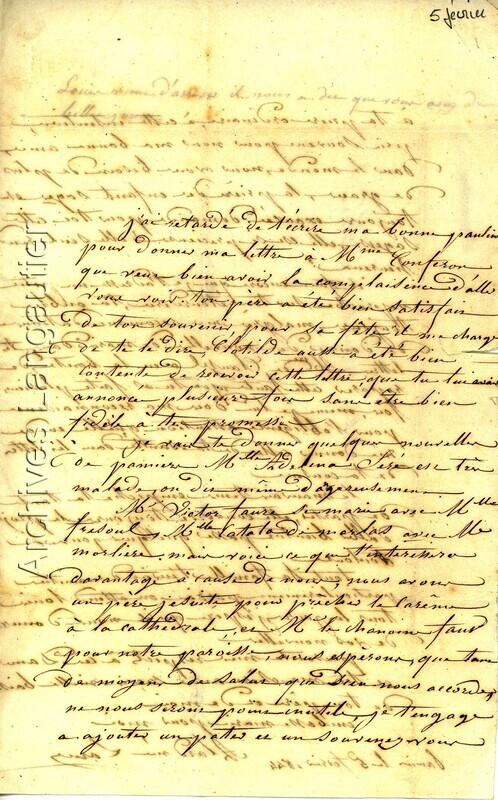 5 février
Louis vient d'arriver il nous a dit que vous avez de
belle
j'ai retardé de t'écrire ma bonne pauline
pour donner ma lettre à Mme Conferon
que veut bien avoir la complaisence d'aller
vous voir. ton père a été bien satisfait
de ton souvenir, pour sa fête, il me charge
de te le dire, Clotilde aussi a été bien
contente de recevoir cette lettre, que tu lui avais
annoncé plusieurs fois sans être bien
fidèle à tes promesses.
je vais te donner quelques nouvelles
de pamiers Mlle Adelina Séré est très
malade, on dit même dangereusement
Mr Victor faure se marie avec Mlle
fresoul, Mlle latala de morlas avec Mr
morliere, mais voici ce qui t'interessera
davantage à cause de nous, nous avons
un père jesuite pour prêcher le Carême
à la cathédrale, et Mr le chanoine faur
pour notre paroisse, nous esperons, que tant
de moyens de salut que Dieu nous accorde,
ne nous seront point inutile, je t'engage
a ajouter un pater et un souvenez vous
Pamiers le 5 février 1844
Archives Langautier